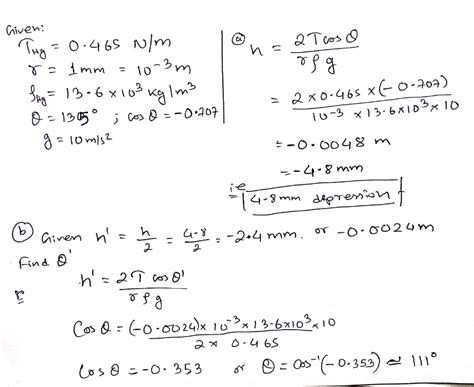 Given:
T_Hg = 0.465 N/m
r = 1mm = 10⁻³ m
ρ_Hg = 13.6 x 10³ kg/m³
θ = 135° ; cos θ = -0.707
g = 10 m/s²
(a) h = 2Tcosθ / rρg
= 2 x 0.465 x (-0.707) / 10⁻³ x 13.6x10³ x 10
= -0.0048 m
= -4.8 mm
i.e = 4.8mm depression
(b) Given h' = h/2 = 4.8/2 = -2.4 mm. or -0.0024m
Find θ'
h' = 2T cosθ' / rρg
Cosθ = (-0.0024) x 10⁻³ x 13.6x10³ x 10 / 2 x 0.465
Cosθ = -0.353 or θ = Cos⁻¹(-0.353) ≃ 111°